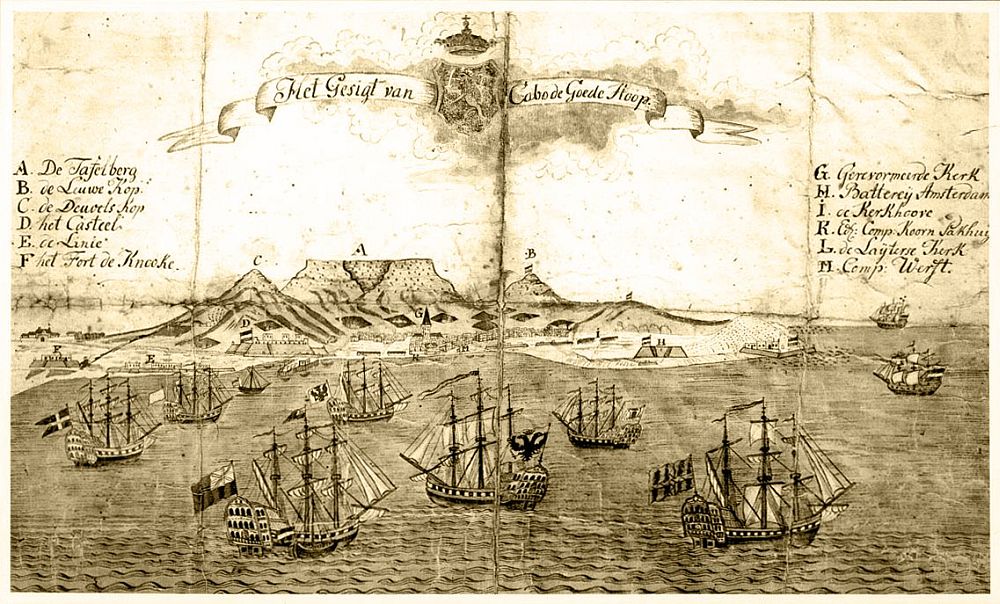 Het Gesigt van Cabo de Goede Hoop.
A. De Tafelberg
B. de Leuwe Kop.
C. de Deuvels Kop
D. het Casteel
E. de Linie
F het Fort de Knocke.
G. Gerevormeerde Kerk
H. Batterey Amsterdam
I. de Kerkhoove
K. Comp: Koorn Pakhuis
L. de Luyterse Kerk
M. Comp: Werft.
A
C
B
G
D
H
F
E